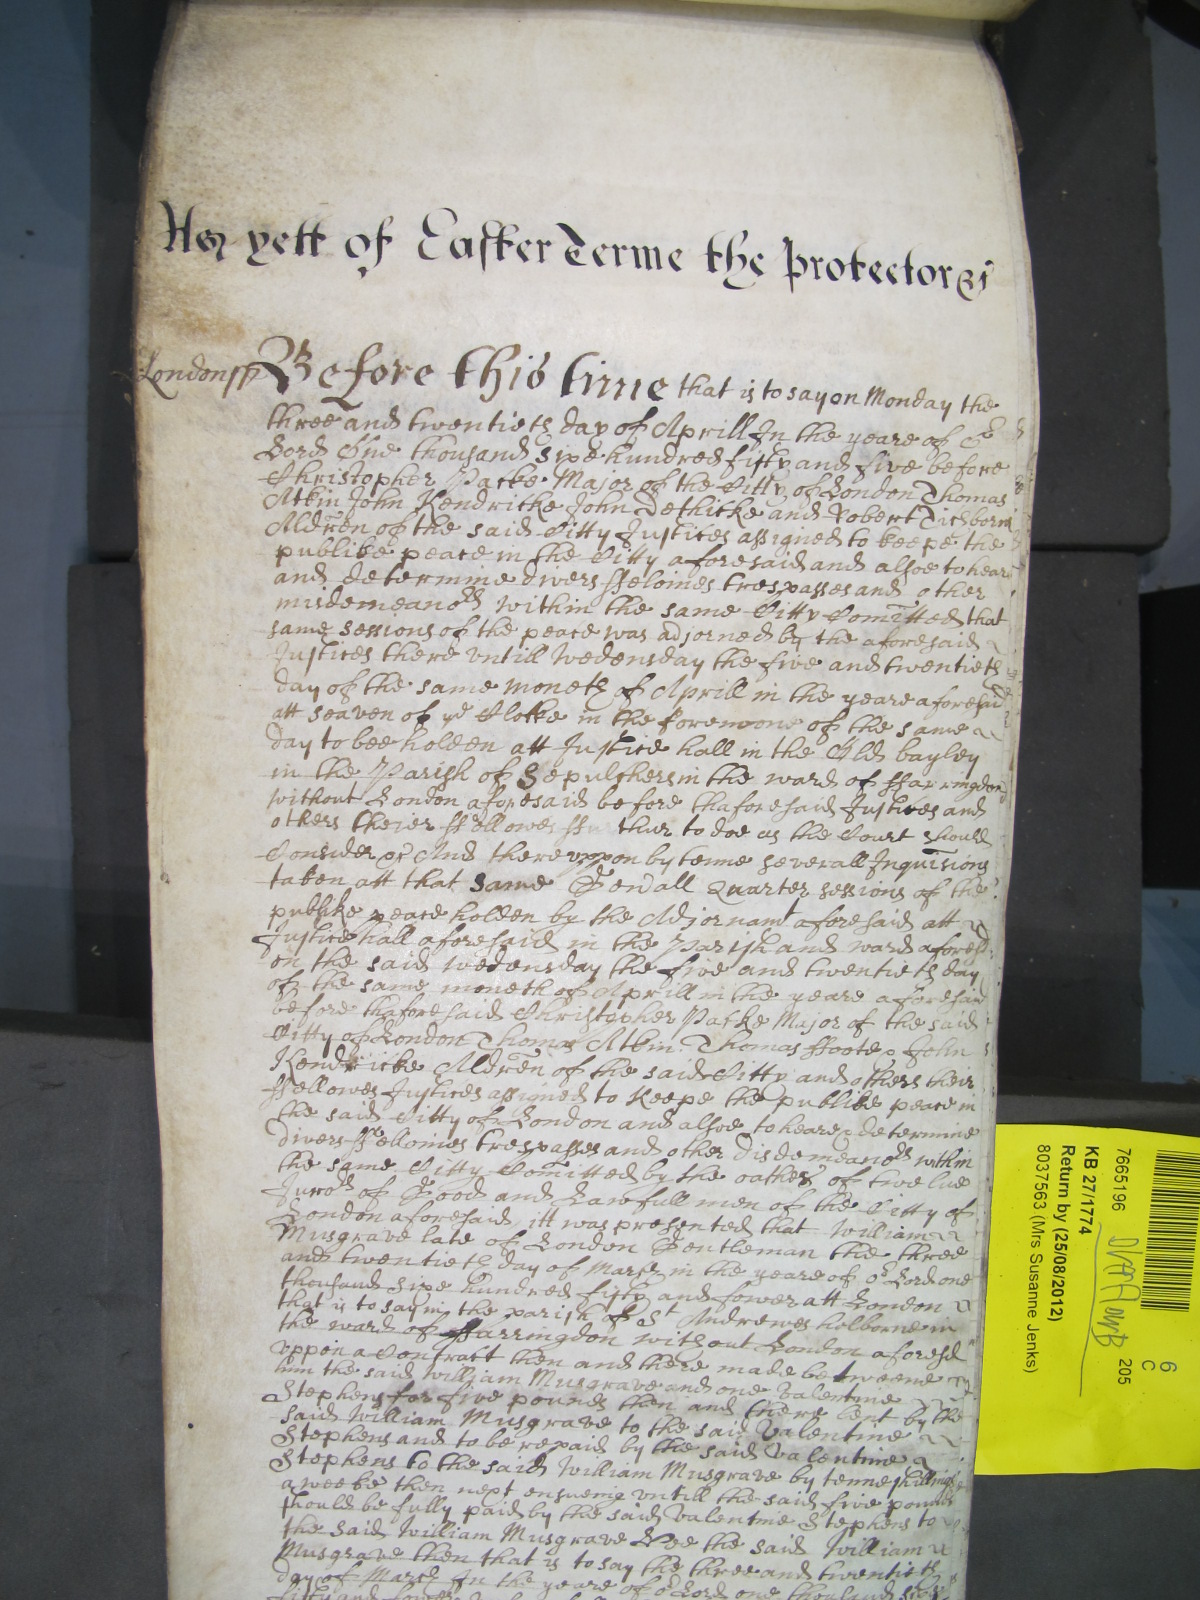 yett of Easter Terme the Protector
Londonss Before this time that is to say on Monday the
three and twentieth day of Aprill In the yeare of or
Lord One thousand sixe hundred fifty and five before
Christopher Packe Major of the Citty of London Thomas
Atkin John Kendricke John Dethicke and Robert Titchborn
Aldren of the said Citty Justices assigned to keepe the
publike peace in the Citty aforesaid and alsoe to heare
and determine divers ffelonies trespasses and other
misdemeanors within the same Citty Comitted that
same sessions of the peace was adjorned by the aforesaid
Justices there vntill Wedensday the five and twentieth
day of the same moneth of Aprill in the yeare aforesaid
att seaven of ye Clocke in the forenoone of the same
day to bee holden att Justice hall in the Old bayley
in the Parish of Sepulchers in the ward of ffarringdon
without London aforesaid before thaforesaid Justices and
others theier ffellowes thur to doe as the Court should
Consider And therevppon by tenne severall Inquisicions
taken att that same Genall Quarter sessions of the
publike peace holden by the Adjornamt aforesaid att
Justice hall aforesaid in the Parish and ward aforesd
on the said Wedensday the five and twentieth day
of the same moneth of Aprill in the yeare aforesaid
before thaforesaid Christopher Packe Major of the said
Citty of London Thomas Atkin Thomas ffoote John
Kendricke Aldren of the said Citty and others their
ffellowes Justices assigned to Keepe the publike peace in
the said Citty of London and alsoe to heare determine
divers ffellonies trespasses and other disdemeanors within
the same Citty Comitted by the oathes of twelve
Jurors of Good and Lawfull men of the Citty of
London aforesaid itt was presented that William
Musgrave late of London Gentleman the three
and twentieth day of March in the yeare of or Lord one
thousand sixe hundred fifty and fower att London
that is to say in the parish of St Andrewes holborne in
the ward of ffarringdon without London aforesd
vppon a Contract then and there made betweene
him the said William Musgrave and one Valentine
Stephens for five pounds then and there lent by the
said William Musgrave to the said Valentine
Stephens and to be repaid by the said Valentine
Stephens to the said William Musgrave by tenne shillings
a weeke then next ensueing vntill the said five pounds
should be fully paid by the said Valentine Stephens to
the said William Musgrave Hee the said William
Musgrave then that is to say the three and twentieth
day of March In the yeare of or Lord one thousand sixe
fifty and fower
7665196
205
6
C
KB 27/1774
Return by (25/08/2012)
8037563 (Mrs Susanne Jenks)